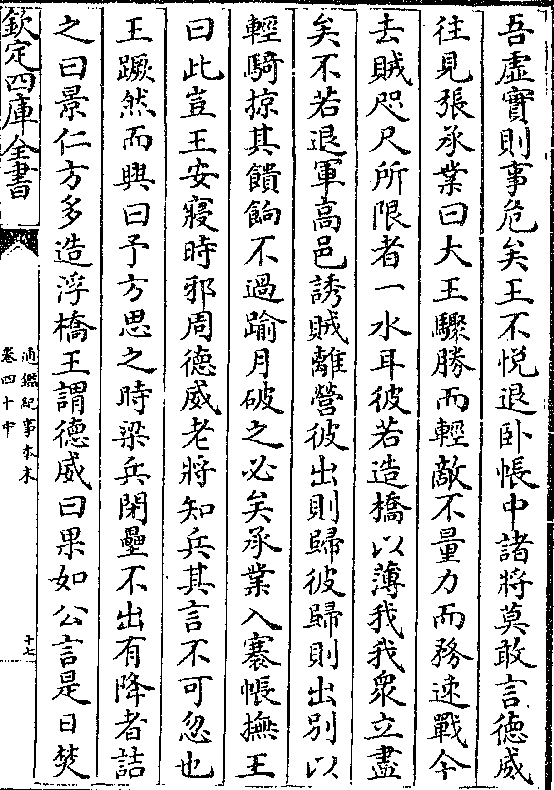 吾虛實則事危矣王不悦退卧帳中諸將莫敢言德威
往見張承業曰大王驟勝而輕敵不量力而務速戰今
去賊咫尺所限者一水耳彼若造橋以薄我我衆立盡
矣不若退軍高邑誘賊離營彼出則歸彼歸則出别以
輕騎掠其饋餉不過踰月破之必矣承業入褰帳撫王
曰此豈王安寢時邪周德威老將知兵其言不可忽也
王蹶然而興曰予方思之時梁兵閉壘不出有降者詰
之曰景仁方多造浮橋王謂德威曰果如公言是日焚
欽定四庫全書
通鑑紀事本末
卷四十中
十七